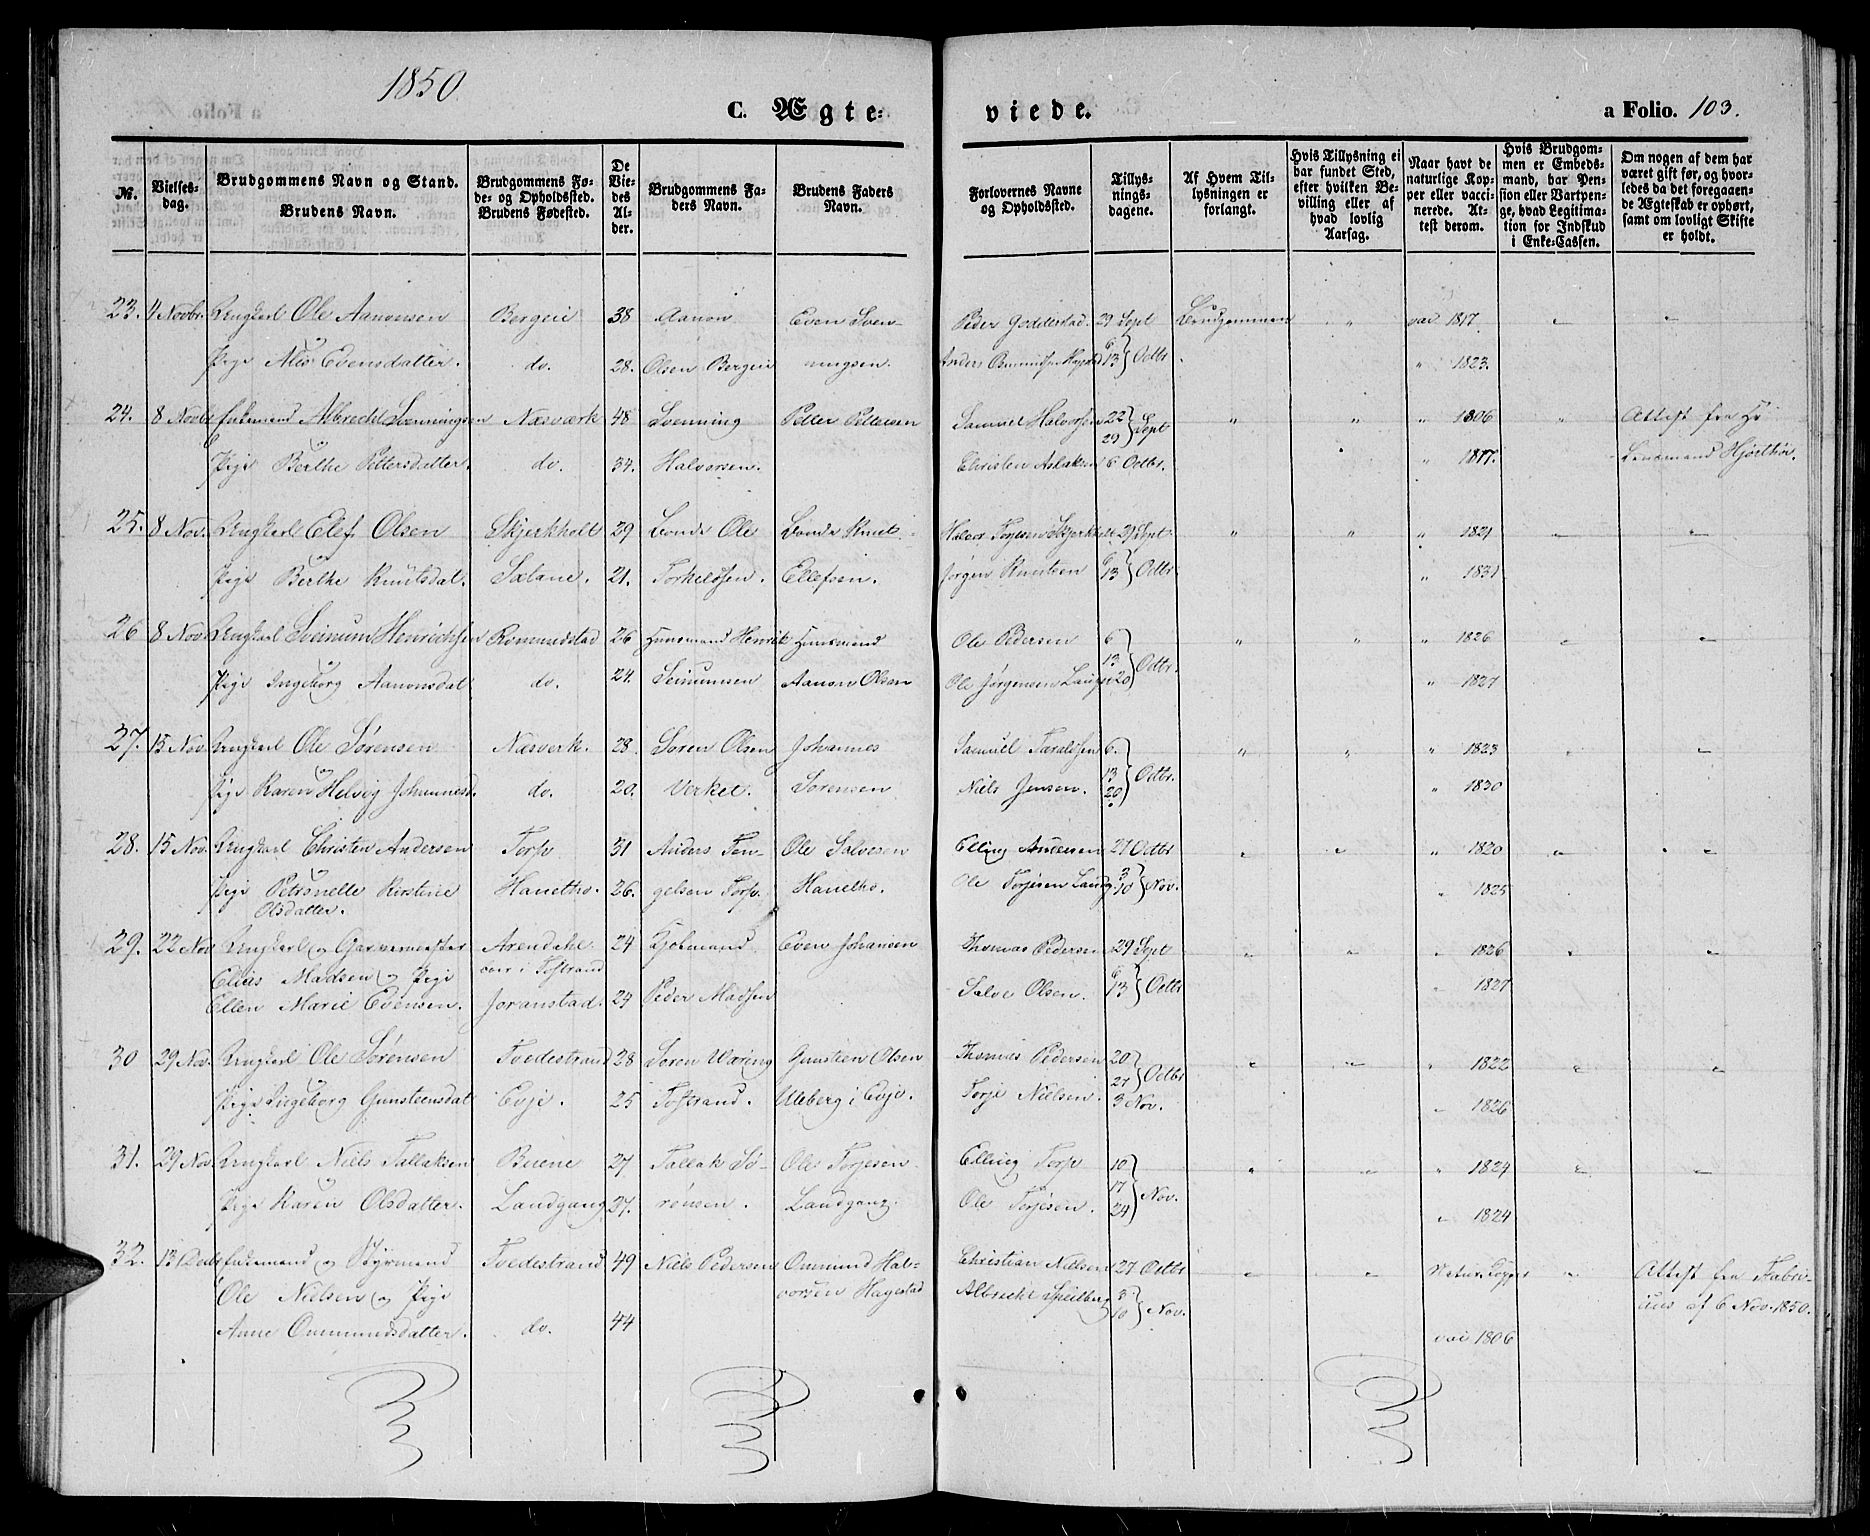 1850.
C. Ægteviede.
a Folio. 103.
№. | Vielsesdag. | Brudgommens Navn og Stand. Brudens Navn. | Brudgommens Føde- og Opholdsted. Brudens Fødested. | De Viedes Alder. | Brudgommens Faders Navn. | Brudens Faders Navn. | Forlovernes Navne og Opholdsted. | Tillysningsdagene. | Af Hvem Tillysningen er forlangt. | Hvis Tillysning ei har fundet Sted, efter hvilken Bevilling eller af hvad lovlig Aarsag. | Naar havt de naturlige Kopper eller vaccinerede. Attest derom. | Hvis Brudgommen er Embedsmand, har Pension eller Vartpenge, hvad Legitimation for Indskud i Enke-Cassen. | Om nogen af dem har været gift før, og hvorledes da det foregaaende Ægteskab er ophørt, samt om lovligt Skifte er holdt.
23. | 4 Novbr. | Ungkarl Ole Aanonsen | Bergeie | 38 | Aanon | Even Sven- | Peder Goddelstad. | 29 Sept | Brudgommen | " | vac 1817. | " | "
og
Pige Anes Evensdatter. | do. | 28. | Olsen Bergeie | ningsen. | Anders Osmundsen | 6 13 } Octbr. | " 1823.
24. | 8 Novbr | Enkemand Albrecht Svenningsen | Næsværk | 48 | Svenning | Petter Pettersen | Samuel Halvorsen | 22 29 } Sept | " | " | " 1806 | " | Attest fra Hr
og
Pige Berthe Pettersdatter. | do. | 34. | Halvorsen. | Christen Aslaksen | 6 Octbr. | " 1817. | Lensmand Hjorthøi.
25. | 8 Nov. | Ungkarl Elef Olsen | Skjerkholt | 29 | Bonde Ole | Bonde Knut | Halvor Torjesen Skjerkholt | 29 Sept. | " | " | " 1821 | " | "
Pige Berthe Knutsdat. | Sætane. | 21. | Torkelssen. | Ellefsen. | Jørgen Knutsen | 6 13 } Octbr. | " 1831
26 | 8 Nov | Ungkarl Seimun Henrichsen | Rommedstad | 26 | Huusmand Henrik | Huusmand | Ole Pedersen | 6 | " | " | " 1826 | " | "
og
Pige Ingeborg Aanonsdat | do. | 24. | Seimunsen | Aanon Olsen | Ole Jørgensen | 13 20 } Octbr. | " 1827
27. | 15 Nov | Ungkarl Ole Sørensen | Næsverk. | 28. | Søren Olsen | Johannes | Samuel Taraldsen | 6. | " | " | " 1823 | " | "
og
Pige Karen Helvig Johannesd. | do. | 20. | Verket. | Sørensen | Niels Jensen. | 13 20 } Octbr. | " 1830
28. | 15 Nov. | Ungkarl Christen Andersen | Torp | 31 | Anders Ten- | Ole Salvesen | Elling Andersen | 27 Octbr | " | " | " 1820 | " | "
og
Pige Petronelle Kirstine | Hanetho. | 26. | gelsen Torp. | Hanetho. | Ole Torjesen | 3 10 } Nov. | " 1825
Olsdatter.
29. | 22 Nov | Ungkarl og Garvermester | Arendahl | 24 | Kjøbmand | Even Johansen | Thomas Pedersen | 29 Sept | " | " | " 1826 | " | "
Elias Madsen og Pige | boer i Tvstrand
Ellen Marie Evensen. | Joranstad. | 24 | Peder Madsen | Salve Olsen. | 6 13 } Octbr | " 1827
30 | 29 Nov. | Ungkarl Ole Sørensen | Tvedestrand | 28 | Søren Wæring | Gunsteen Olsen | Thomas Pedersen | 20 | " | " | " 1822 | " | "
og
Pige Ingeborg Gunsteensdat | Evje. | 25 | Tvstrand. | Uleberg i Evje. | Torje Nielsen. | 27 } Octbr 3 Nov. | " 1826
31. | 29 Nov. | Ungkarl Niels Tallaksen | Buene | 27 | Tallak Sø- | Ole Torjesen | Elling Torp | 10 | " | " | " 1824 | " | "
og
Pige Karen Olsdatter. | Landgang | 37. | rensen. | Landgang. | Ole Torjesen. | 17 24 } Nov. | " 1824
32. | 13 Decbr | Enkemand og Styrmand | Tvedestrand | 49 | Niels Pedersen | Ommund Hal- | Christian Nielsen | 27 Octbr | " | " | Natur. Kopper | " | Attest fra Fabri-
Ole Nielsen og Pige | vorsen Hagestad | Albrecht | 3 10 } Nov. | cius af 6 Nov. 1850.
Anne Ommundsdatter. | do. | 44 | vac 1806